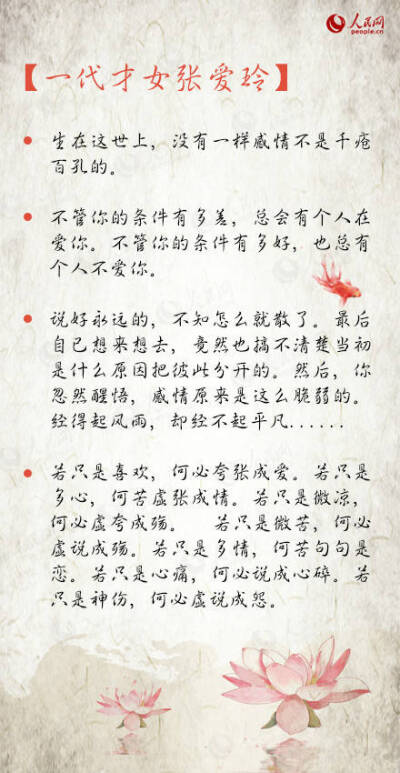 人民网
people.cn
【一代才女张爱玲】
生在这世上，没有一样感情不是千疮
百孔的。
不管你的条件有多差，总会有个人在
爱你。不管你的条件有多好，也总有
个人不爱你。
说好永远的，不知怎么就散了。最后
自己想来想去，竟然也搞不清楚当初
是什么原因把彼此分开的。然后，你
忽然醒悟，感情原来是这么脆弱的。
经得起风雨，却经不起平凡......
若只是喜欢，何必夸张成爱。若只是
多心，何苦虚张成情。若只是微凉，
何必虚夸成殇。 若只是微苦，何必
虚说成殇。若只是多情，何苦句句是
恋。若只是心痛，何必说成心碎。若
只是神伤，何必虚说成怨。